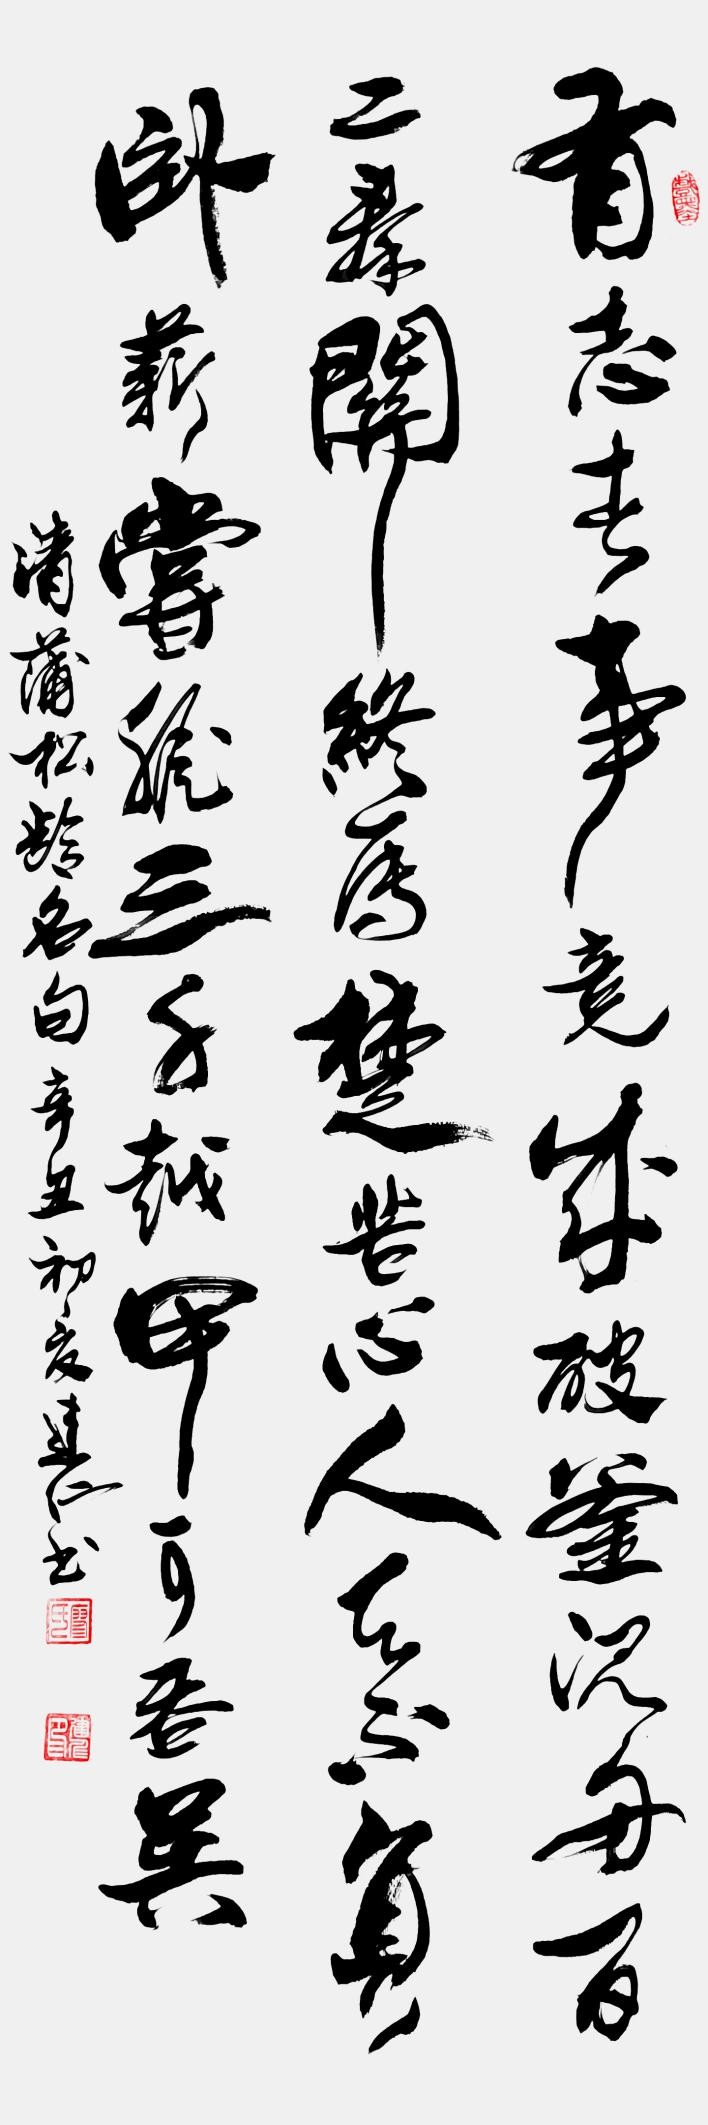 有志者事竟成破釜沉舟百
二秦關終屬楚苦心人天不負
卧薪嘗膽三千越甲可吞吴
清蒲松齡名句辛丑初夏建仙书